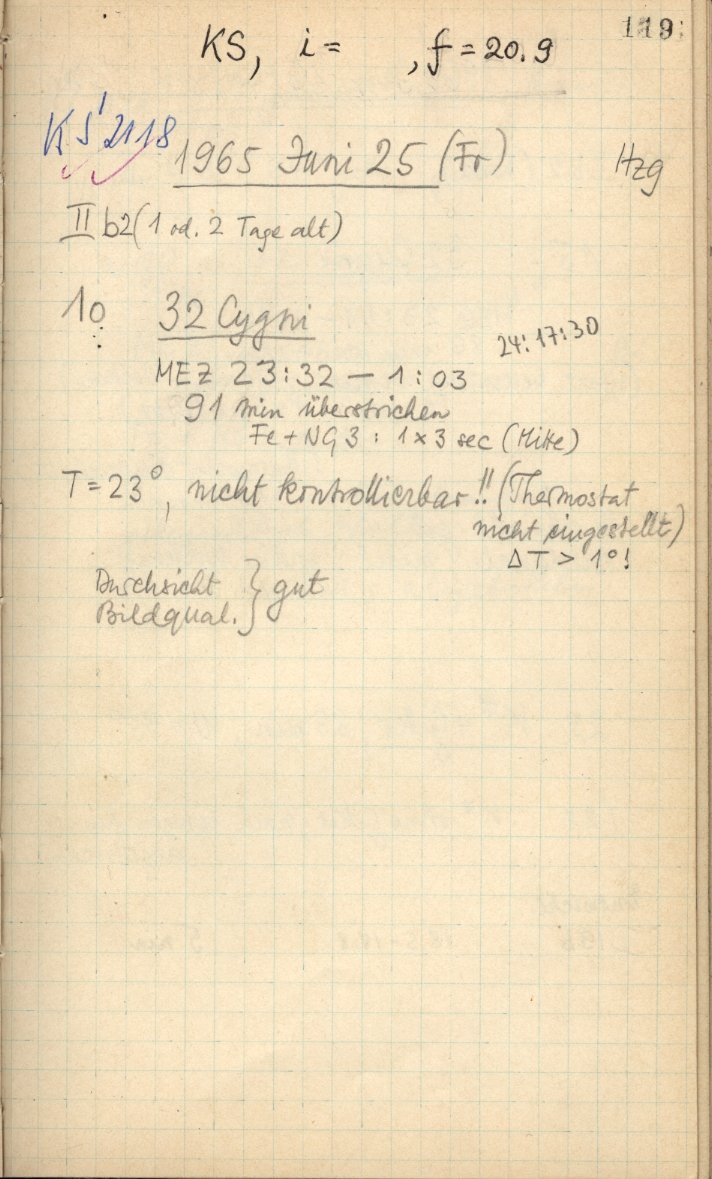 119
KS, i =      , f = 20.9
KS 2118
1965 Juni 25 (Fr)
Hzg
II b2 (1 od. 2 Tage alt)
10 32 Cygni
24:17:30
MEZ 23:32 – 1:03
91 min überstrichen
Fe + NG 3 : 1 x 3 sec (Mitte)
T = 23°, nicht kontrollierbar!! (Thermostat
nicht eingestellt)
ΔT > 1°!
Durchsicht } gut
Bildqual.